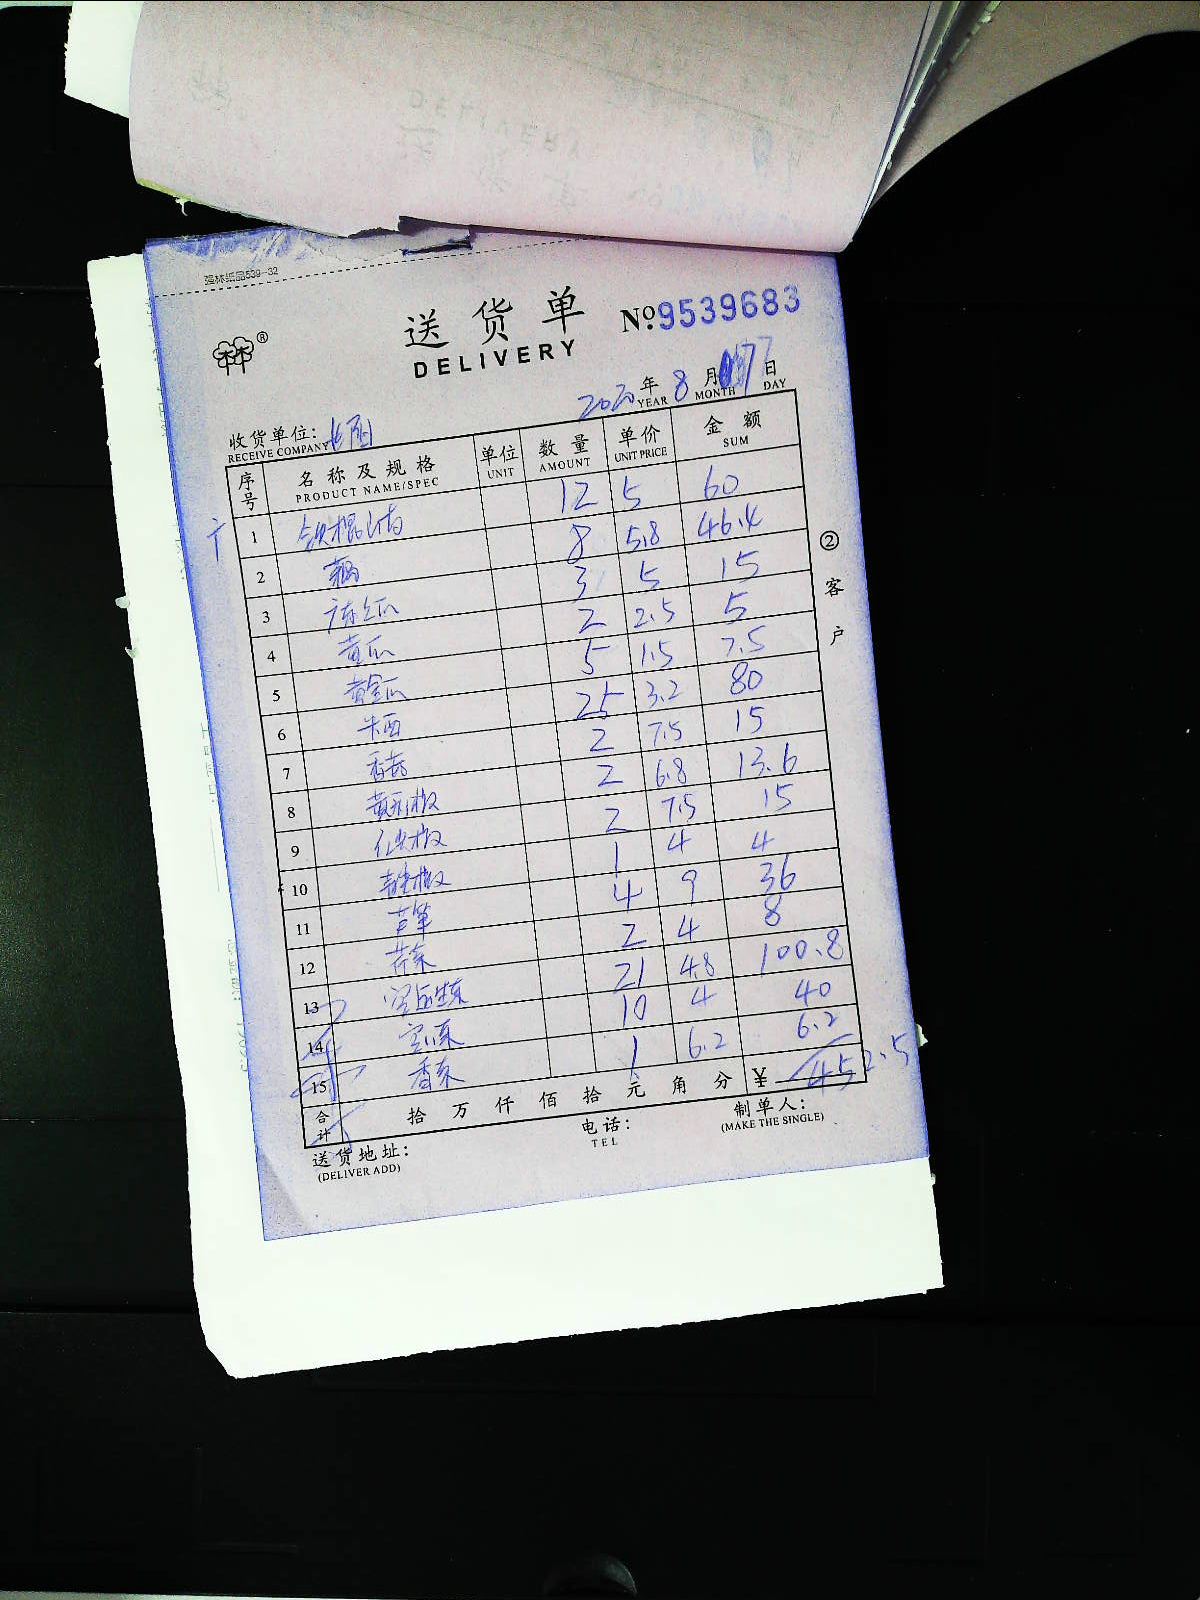 强林纸品539-32
送货单 №9539683
DELIVERY
2020年8月7日
YEAR MONTH DAY
收货单位:
RECEIVE COMPANY
序号 名称及规格 单位 数量 单价 金额
PRODUCT NAME/SPEC UNIT AMOUNT UNIT PRICE SUM
1 铁棍山药 12 5 60
2 藕 8 5.8 46.4
3 冬瓜 3 5 15
4 黄瓜 2 2.5 5
5 黄金瓜 5 1.5 7.5
6 25 3.2 80
7 香菇 2 7.5 15
8 黄彩椒 2 6.8 13.6
9 红尖椒 2 7.5 15
10 青尖椒 1 4 4
11 芦笋 4 9 36
12 芹菜 2 4 8
13 21 4.8 100.8
14 空心菜 10 4 40
15 香菜 1 6.2 6.2
合计 拾万仟佰拾元角分 ¥ 452.5
② 客户
送货地址: 电话: 制单人:
(DELIVER ADD) TEL (MAKE THE SINGLE)